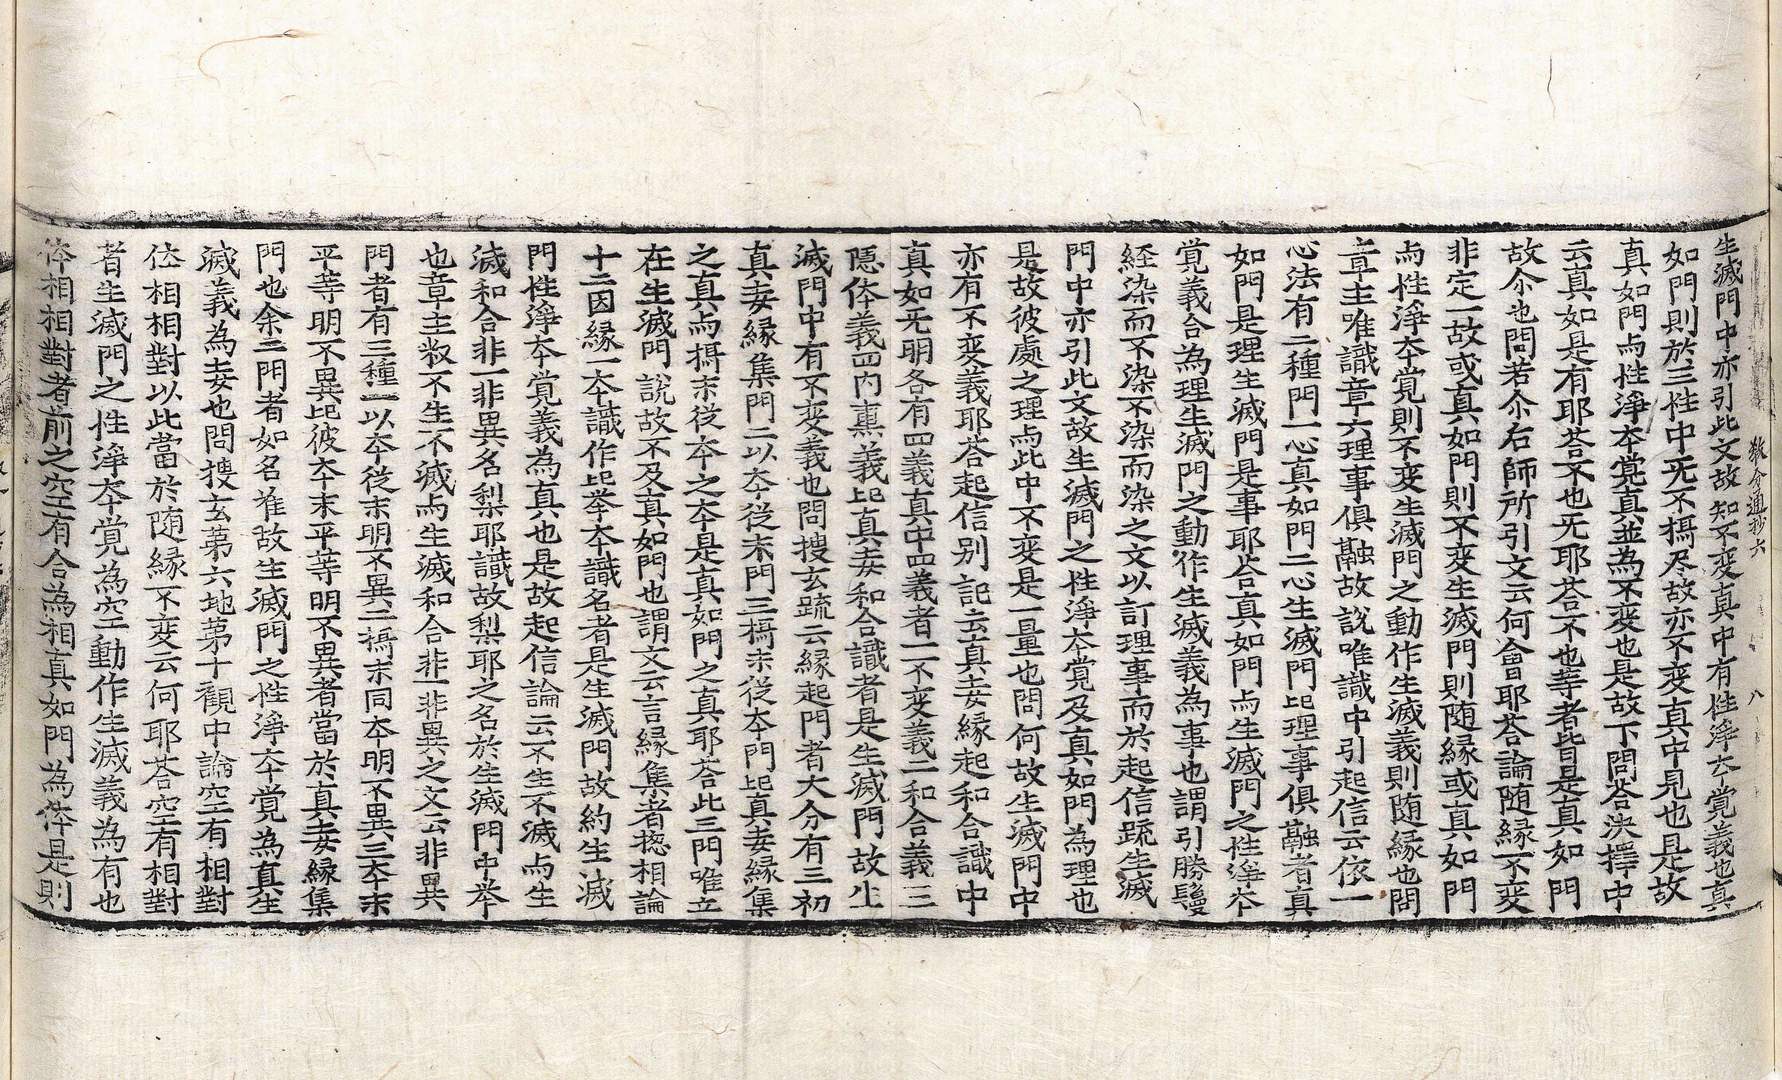 生滅門中亦引此文故知不変真中有性淨夲覚義也真
教分通抄六　八
如門則於三性中旡不攝尽故亦不変真中見也是故
真如門与性淨夲覚真並為不変也是故下問荅決擇中
云真如是有耶荅不也旡耶荅不也等者皆是真如門
故尒也問若尒右師所引文云何會耶荅論随縁不変
非定一故或真如門則不変生滅門則随縁或真如門
与性淨夲覚則不変生滅門之動作生滅義則随縁也問
章主唯識章六理事俱融故説唯識中引起信云依一
心法有二種門一心真如門二心生滅門此理事俱融者真
如門是理生滅門是事耶荅真如門与生滅門之性淨夲
覚義合為理生滅門之動作生滅義為事也謂引勝鬘
経染而不染不染而染之文以訂理事而於起信疏生滅
門中亦引此文故生滅門之性淨夲覚及真如門為理也
是故彼處之理与此中不変是一量也問何故生滅門中
亦有不変義耶荅起信别記云真妄縁起和合識中
真如旡明各有四義真中四義者一不変義二和合義三
隱体義四内熏義此真妄和合識者是生滅門故生
滅門中有不変義也問搜玄疏云縁起門者大分有三初
真妄縁集門二以夲従末門三攝末従夲門此真妄縁集
之真与攝末従夲之夲是真如門之真耶荅此三門唯立
在生滅門說故不及真如門也謂文云言縁集者揔相論
十二因縁一夲識作此举夲識名者是生滅門故約生滅
門性淨夲覚義為真也是故起信論云不生不滅与生
滅和合非一非異名梨耶識故梨耶之名於生滅門中举
也章主叙不生不滅与生滅和合非一非異之文云非異
門者有三種一以夲従末明不異二攝末同夲明不異三夲末
平等明不異此彼夲末平等明不異者當於真妄縁集
門也余二門者如名准故生滅門之性淨夲覚為真生
滅義為妄也問搜玄第六地第十觀中論空有相對
体相相對以此當於随縁不変云何耶荅空有相對
者生滅門之性淨夲覚為空動作生滅義為有也
体相相對者前之空有合為相真如門為体是則